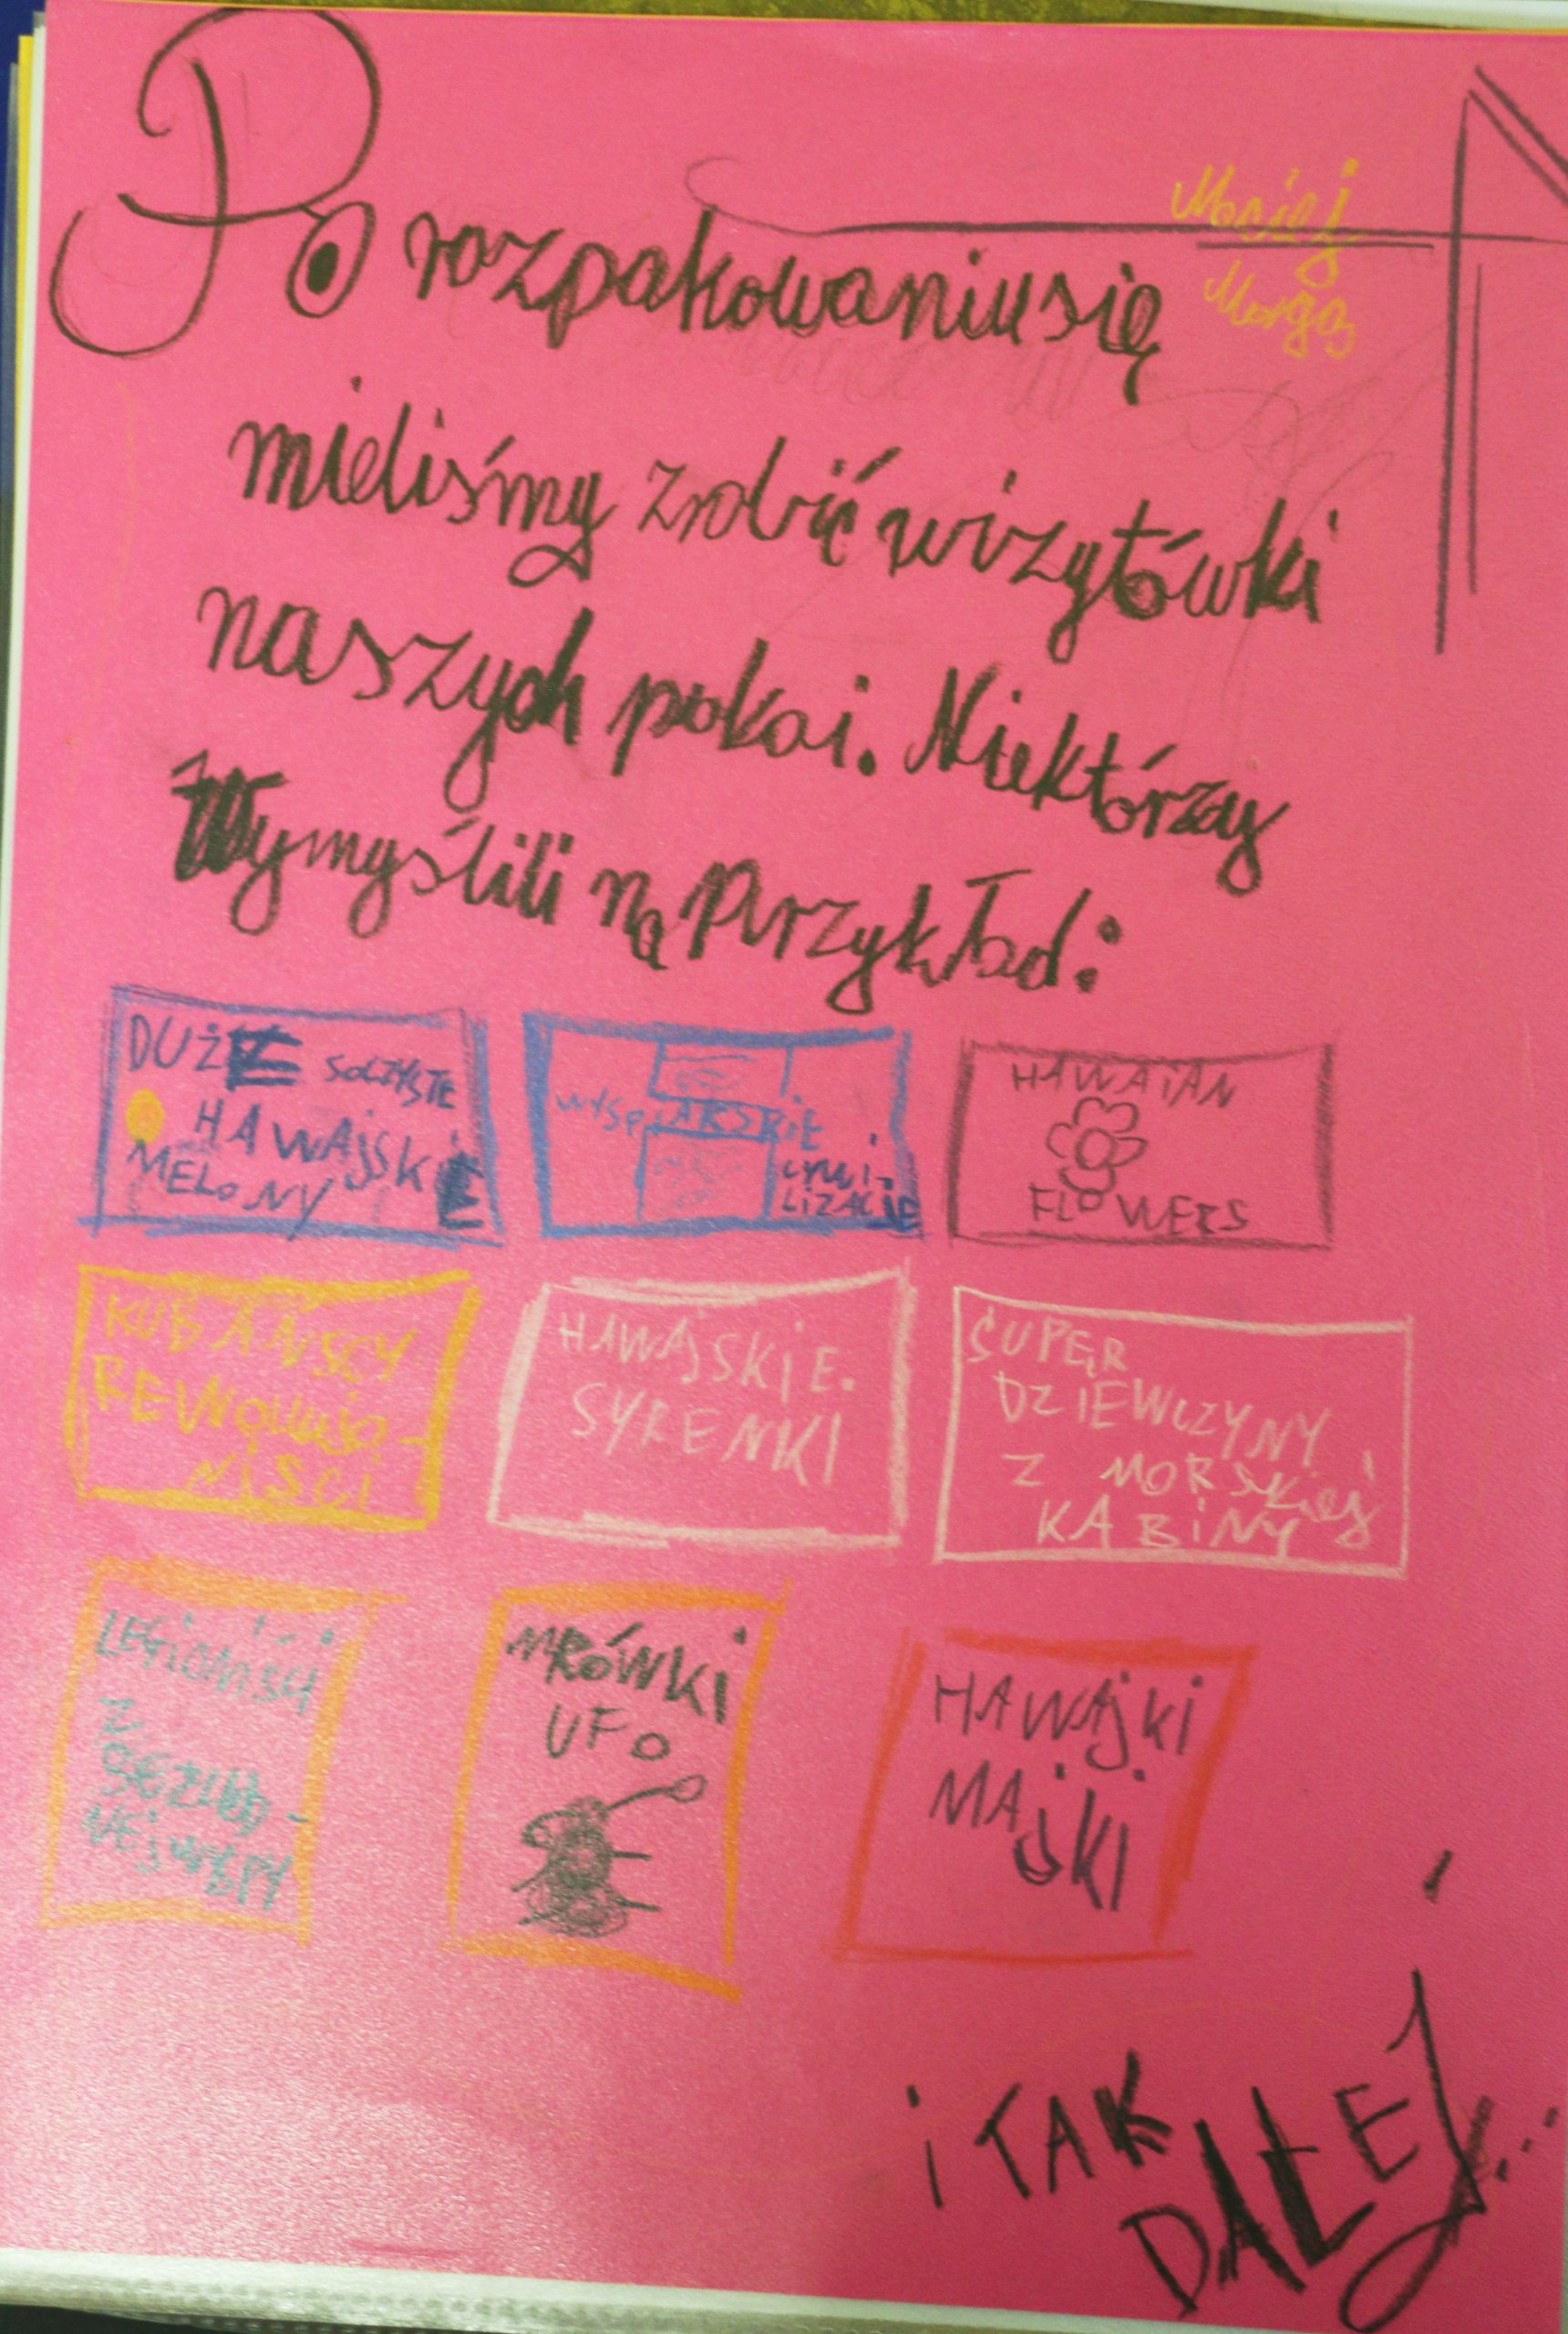 Po rozpakowaniu się
Maciej
mieliśmy zrobić wizytówki
naszych pokoi. Niektórzy
Wymyślili na Przykład:
DUŻE SOCZYSTE
HAWAjSKiE
MELONY
WYSPiARSKiE
CYWi-
LiZACjE
HAWAiAN
FLOWERS
KUBAŃSCY
REWOLUCjO-
NiŚCi
HAWAjSKiE.
SYRENKI
SUPER
DZIEWCZYNY
Z MORSKiej
KABiNY
LEGioNiŚCi
Z
BEZLUD-
NEj WYSPY
MRÓWKi
UFo
HAWAjKi
MAjKI
i TAK
DALEJ...